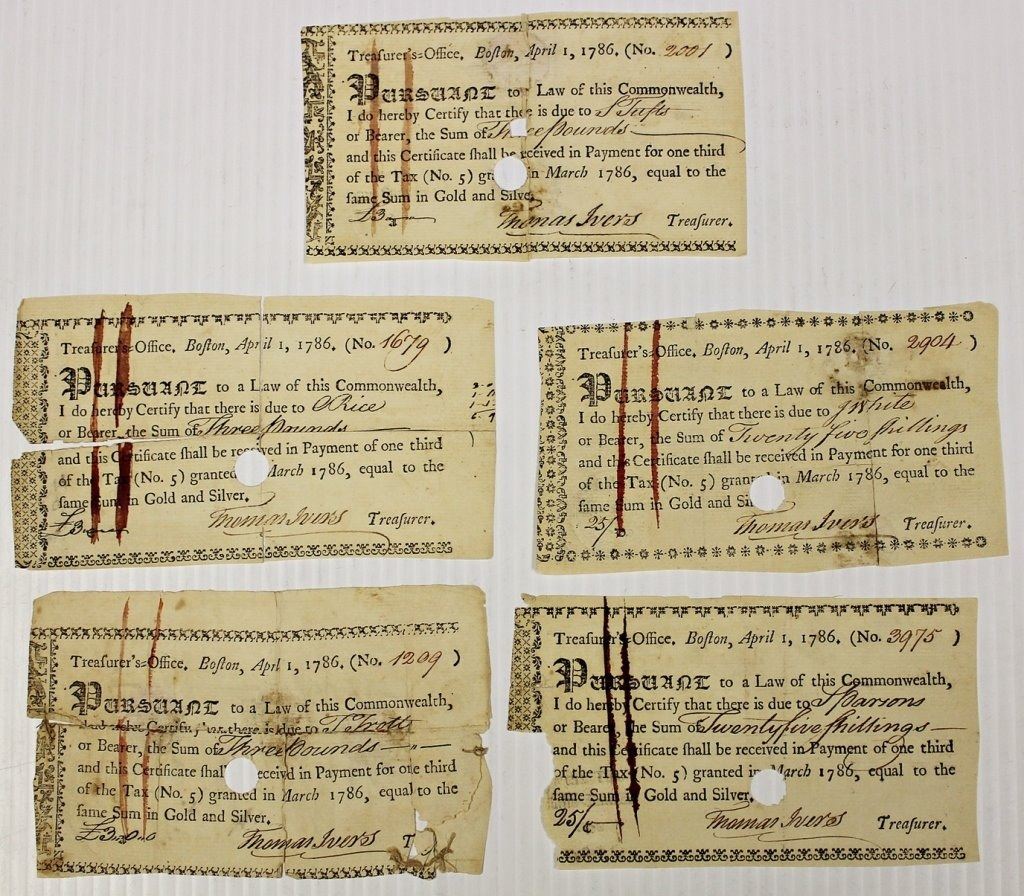 Treaſurer's=Office. Boſton, April 1, 1786. (No. 2001 )
PURSUANT to Law of this Commonwealth,
I do hereby Certify that there is due to S Tufts
or Bearer, the Sum of Three Pounds
and this Certificate ſhall be received in Payment for one third
of the Tax (No. 5) in March 1786, equal to the
ſame Sum in Gold and Silver.
£3
Thomas Ivers Treaſurer.
Treaſurer's=Office. Boſton, April 1, 1786. (No. 1679 )
PURSUANT to a Law of this Commonwealth,
I do hereby Certify that there is due to Rice
or Bearer, the Sum of Three Pounds
and this Certificate ſhall be received in Payment of one third
of the Tax (No. 5) granted March 1786, equal to the
ſame Sum in Gold and Silver.
£3
Thomas Ivers Treaſurer.
Treaſurer's=Office. Boſton, April 1, 1786. (No. 2904 )
PURSUANT to a Law of this Commonwealth,
I do hereby Certify that there is due to J White
or Bearer, the Sum of Twenty five ſhillings
and this Certificate ſhall be received in Payment for one third
of the Tax (No. 5) granted in March 1786, equal to the
ſame Sum in Gold and Sil
25/
Thomas Ivers Treaſurer.
Treaſurer's=Office. Boſton, Apri 1, 1786. (No. 1209 )
PURSUANT to a Law of this Commonwealth,
there is due to T Trott
or Bearer, the Sum of Three Pounds
and this Certificate ſhall receivd in Payment for one third
of the Tax (No. 5) granted in March 1786, equal to the
ſame Sum in Gold and Silver.
£3..0..0
Thomas Ivers T
Treaſurer's=Office. Boſton, April 1, 1786. (No. 3975 )
PURSUANT to a Law of this Commonwealth,
I do hereby Certify that there is due to Parsons
or Bearer, the Sum of Twenty five ſhillings
and this Certificate ſhall be received in Payment of one third
of the Tax (No. 5) granted in March 1786, equal to the
ſame Sum in Gold and Silver.
25/
Thomas Ivers Treaſurer.